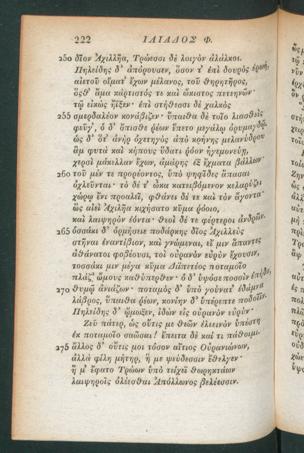 222 ΙΛΙΑΔΟΣ Φ.
250 δῖον Ἀχιλλῆα, Τρώεσσι δὲ λοιγὸν ἀλάλκοι.
Πηλείδης δ' ἀπόρουσεν, ὅσον τ' ἐπὶ δουρὸς ἐρωή,
αἰετοῦ οἴματ' ἔχων μέλανος, τοῦ θηρητῆρος,
ὅσθ' ἅμα κάρτιστός τε καὶ ὤκιστος πετεηνῶν·
τῷ εἰκὼς ἤϊξεν· ἐπὶ στήθεσσι δὲ χαλκὸς
255 σμερδαλέον κονάβιζεν· ὕπαιθα δὲ τοῖο λιασθεὶς
φεῦγ', ὁ δ' ὄπισθε ῥέων ἕπετο μεγάλῳ ὀρυμαγδῷ.
ὡς δ' ὅτ' ἀνὴρ ὀχετηγὸς ἀπὸ κρήνης μελανύδρου
ἂμ φυτὰ καὶ κήπους ὕδατι ῥόον ἡγεμονεύῃ,
χερσὶ μάκελλαν ἔχων, ἀμάρης ἐξ ἔχματα βάλλων·
260 τοῦ μέν τε προρέοντος, ὑπὸ ψηφῖδες ἅπασαι
ὀχλεῦνται· τὸ δέ τ' ὦκα κατειβόμενον κελαρύζει
χώρῳ ἔνι προαλεῖ, φθάνει δέ τε καὶ τὸν ἄγοντα·
ὣς αἰεὶ Ἀχιλῆα κιχήσατο κῦμα ῥόοιο,
καὶ λαιψηρὸν ἐόντα· θεοὶ δέ τε φέρτεροι ἀνδρῶν.
265 ὁσσάκι δ' ὁρμήσειε ποδάρκης δῖος Ἀχιλλεὺς
στῆναι ἐναντίβιον, καὶ γνώμεναι, εἴ μιν ἅπαντες
ἀθάνατοι φοβέουσι, τοὶ οὐρανὸν εὐρὺν ἔχουσιν,
τοσσάκι μιν μέγα κῦμα Διϊπετέος ποταμοῖο
πλάζ' ὤμους καθύπερθεν· ὁ δ' ὑψόσε ποσσὶν ἐπήδα,
270 θυμῷ ἀνιάζων· ποταμὸς δ' ὑπὸ γούνατ' ἐδάμνα
λάβρος, ὕπαιθα ῥέων, κονίην δ' ὑπέρεπτε ποδοῖϊν.
Πηλείδης δ' ᾤμωξεν, ἰδὼν εἰς οὐρανὸν εὐρύν·
Ζεῦ πάτερ, ὡς οὔτις με θεῶν ἐλεεινὸν ὑπέστη
ἐκ ποταμοῖο σαῶσαι! ἔπειτα δὲ καί τι πάθοιμι.
275 ἄλλος δ' οὔτις μοι τόσον αἴτιος Οὐρανιώνων,
ἀλλὰ φίλη μήτηρ, ἥ με ψεύδεσσιν ἔθελγεν·
ἥ μ' ἔφατο Τρώων ὑπὸ τείχεϊ θωρηκτάων
λαιψηροῖς ὀλέεσθαι Ἀπόλλωνος βελέεσσιν.